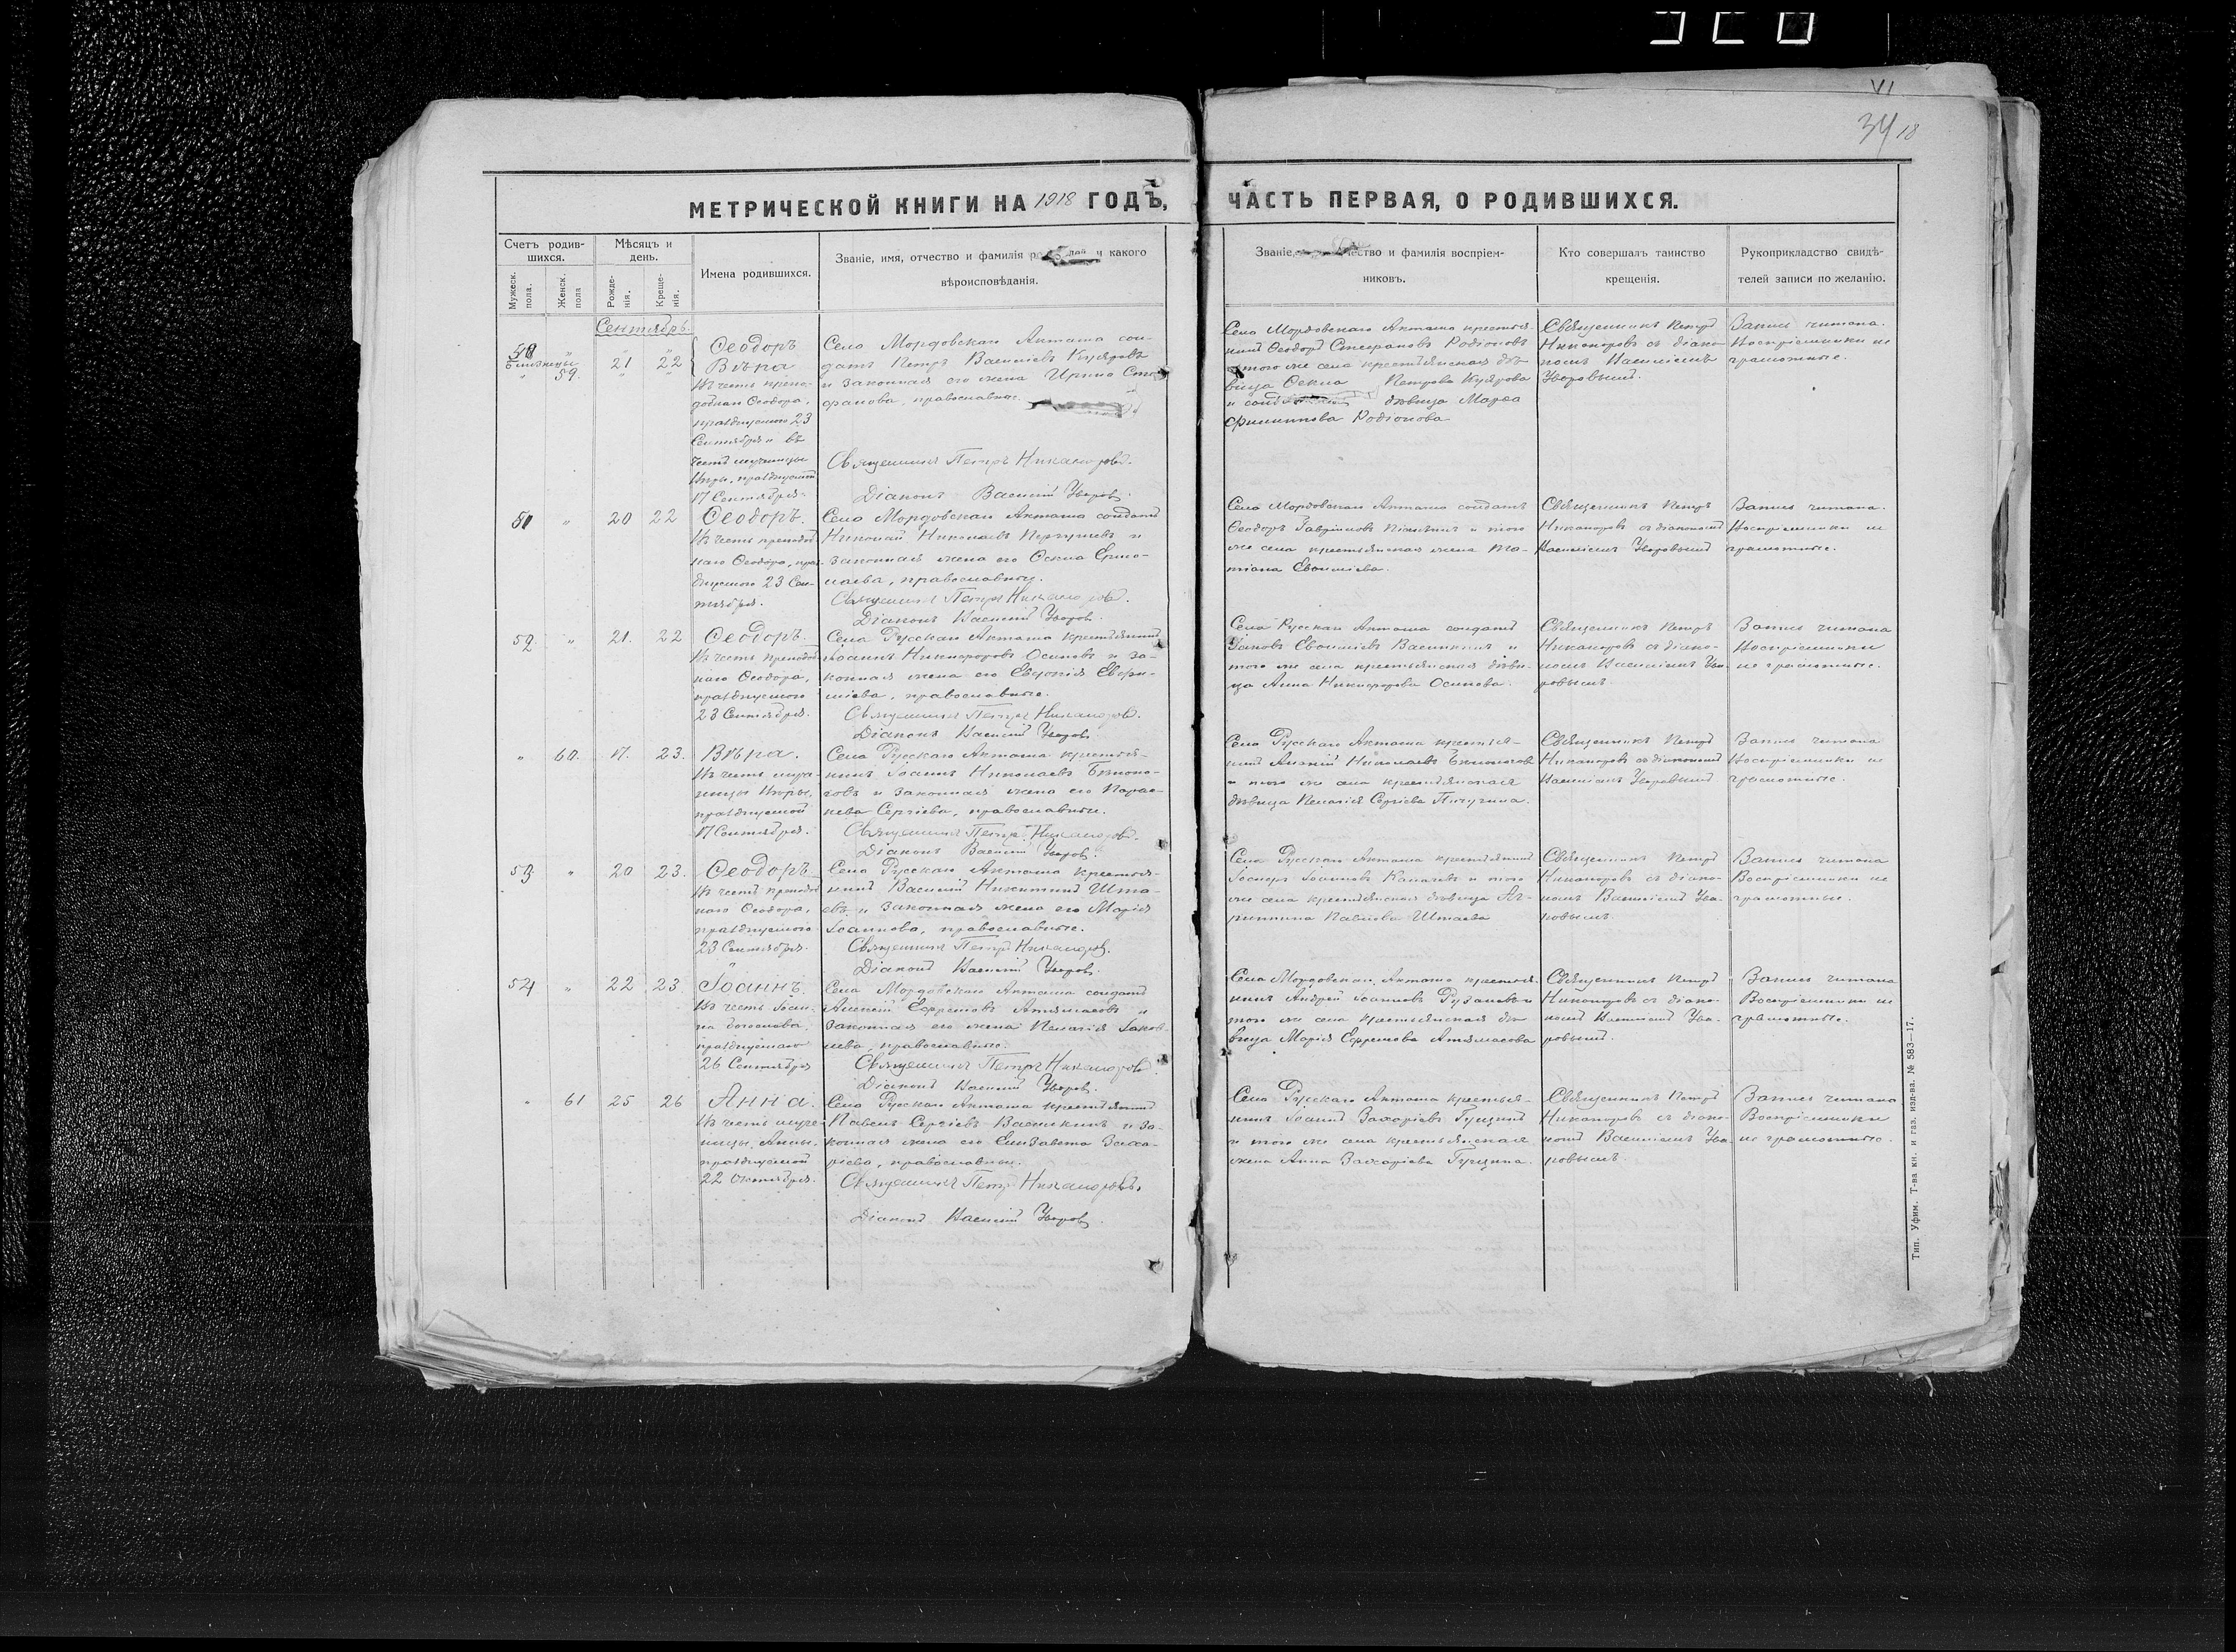 34 18
МЕТРИЧЕСКОЙ КНИГИ НА 1918 ГОДЪ,
ЧАСТЬ ПЕРВАЯ, О РОДИВШИХСЯ.
Счетъ родив-
шихся.
Мужеск. пола.
Женск. пола
Мѣсяцъ и
день.
Рожде-
нія.
Креще-
нія.
Имена родившихся.
Званіе, имя, отчество и фамилія и какого
вѣроисповѣданія.
Званіе, и фамилія воспріем-
никовъ.
Кто совершалъ таинство
крещенія.
Рукоприкладство свидѣ-
телей записи по желанію.
Сентябрь.
близнецы
59.
21 22
Ѳеодоръ
Вѣра
Въ честь препо-
добнаго Ѳеодора,
празднуемаго 23
Сентября и въ
честь мученицы
Вѣры, празднуемой
17 Сентября.
Села Мордовскаго Акташа сол-
датъ Петръ Васильевъ Куяровъ
и законная его жена Ирина Сте-
фанова, православные.
Священникъ Петръ Никаноровъ.
Діаконъ Василій Уваровъ.
Села Мордовскаго Акташа крестья-
нинъ Ѳеодоръ Стефановъ Родіоновъ
того же села крестьянская дѣ-
вица Ѳекла Петрова Куярова
и дѣвица Марѳа
Филиппова Родіонова
Священникъ Петръ
Никаноровъ съ діако-
номъ Василіемъ
Уваровымъ.
Запись читана.
Воспріемники не
грамотные.
51 " 20 22
Ѳеодоръ.
Въ честь преподоб-
наго Ѳеодора, праз-
днуемаго 23 Сен-
тября.
Села Мордовскаго Акташа солдатъ
Николай Николаевъ и
законная жена его Ѳекла Ермо-
лаева, православные.
Священникъ Петръ Никаноровъ.
Діаконъ Василій Уваровъ.
Села Мордовскаго Акташа солдатъ
Ѳеодоръ Гавріиловъ и того
же села крестьянская жена Та-
тіана Евѳиміева.
Священникъ Петръ
Никаноровъ съ діакономъ
Василіемъ Уваровымъ
Запись читана.
Воспріемники не
грамотные.
52 " 21. 22
Ѳеодоръ.
Въ честь преподоб-
наго Ѳеодора,
празднуемаго
23 Сентября.
Села Русскаго Акташа крестьянинъ
Іоаннъ Никифоровъ Осиповъ и за-
конная жена его Евдокія Евфи-
міева, православные.
Священникъ Петръ Никаноровъ.
Діаконъ Василій Уваровъ
Села Русскаго Акташа солдатъ
Іаковъ Евѳиміевъ Васькинъ и
того же села крестьянская дѣви-
ца Анна Никифорова Осипова.
Священникъ Петръ
Никаноровъ съ діако-
номъ Василіемъ Ува-
ровымъ.
Запись читана
Воспріемники
не грамотные.
" 60. 17. 23.
Вѣра.
Въ честь муче-
ницы Вѣры,
празднуемой
17 Сентября.
Села Русскаго Акташа крестья-
нинъ Іоаннъ Николаевъ Бѣлоно-
говъ и законная жена его Парас-
кева Сергіева, православные.
Священникъ Петръ Никаноровъ.
Діаконъ Василій Уваровъ.
Села Русскаго Акташа крестья-
нинъ Николаевъ Бѣлоноговъ
и того же села крестьянская
дѣвица Пелагія Сергіева Пичугина.
Священникъ Петръ
Никаноровъ съ діакономъ
Василіемъ Уваровымъ
Запись читана
Воспріемники не
грамотные.
53. " 20 23.
Ѳеодоръ
Въ честь преподоб-
наго Ѳеодора,
празднуемаго
23 Сентября.
Села Русскаго Акташа крестья-
нинъ Василій Никитинъ Шта-
евъ и законная жена его Марія
Іоаннова, православные.
Священникъ Петръ Никаноровъ.
Діаконъ Василій Уваровъ.
Села Русскаго Акташа крестьянинъ
Іоанновъ и того
же села крестьянская дѣвица Аг-
риппина Павлова Штаева
Священникъ Петръ
Никаноровъ съ діако-
номъ Василіемъ Ува-
ровымъ.
Запись читана
Воспріемники не
грамотные.
54 " 22 23
Іоаннъ.
Въ честь Іоан-
на богослова,
празднуемаго
26 Сентября
Села Мордовскаго Акташа солдатъ
Алексій Ефремовъ Атямасовъ и
законная его жена Пелагія Іаков-
лева, православные.
Священникъ Петръ Никаноровъ.
Діаконъ Василій Уваровъ.
Села Мордовскаго Акташа крестья-
нинъ Андрей Іоанновъ и
того же села крестьянская дѣ-
вица Марія Ефремова Атямасова
Священникъ Петръ
Никаноровъ съ діако-
номъ Василіемъ Ува-
ровымъ.
Запись читана
Воспріемники не
грамотные.
" 61 25 26
Анна.
Въ честь муче-
ницы Анны,
празднуемой
22 Октября.
Села Русскаго Акташа крестьянинъ
Павелъ Сергіевъ Васькинъ и за-
конная жена его Елизавета Заха-
ріева, православные.
Священникъ Петръ Никаноровъ.
Діаконъ Василій Уваровъ.
Села Русскаго Акташа крестья-
нинъ Іоаннъ Захаріевъ Гущинъ
и того же села крестьянская
жена Анна Захаріева Гущина.
Священникъ Петръ
Никаноровъ съ діако-
номъ Василіемъ Ува-
ровымъ.
Запись читана
Воспріемники
не грамотные.
Тип. Уфим. Т-ва кн. и газ. изд-ва. № 583—17.